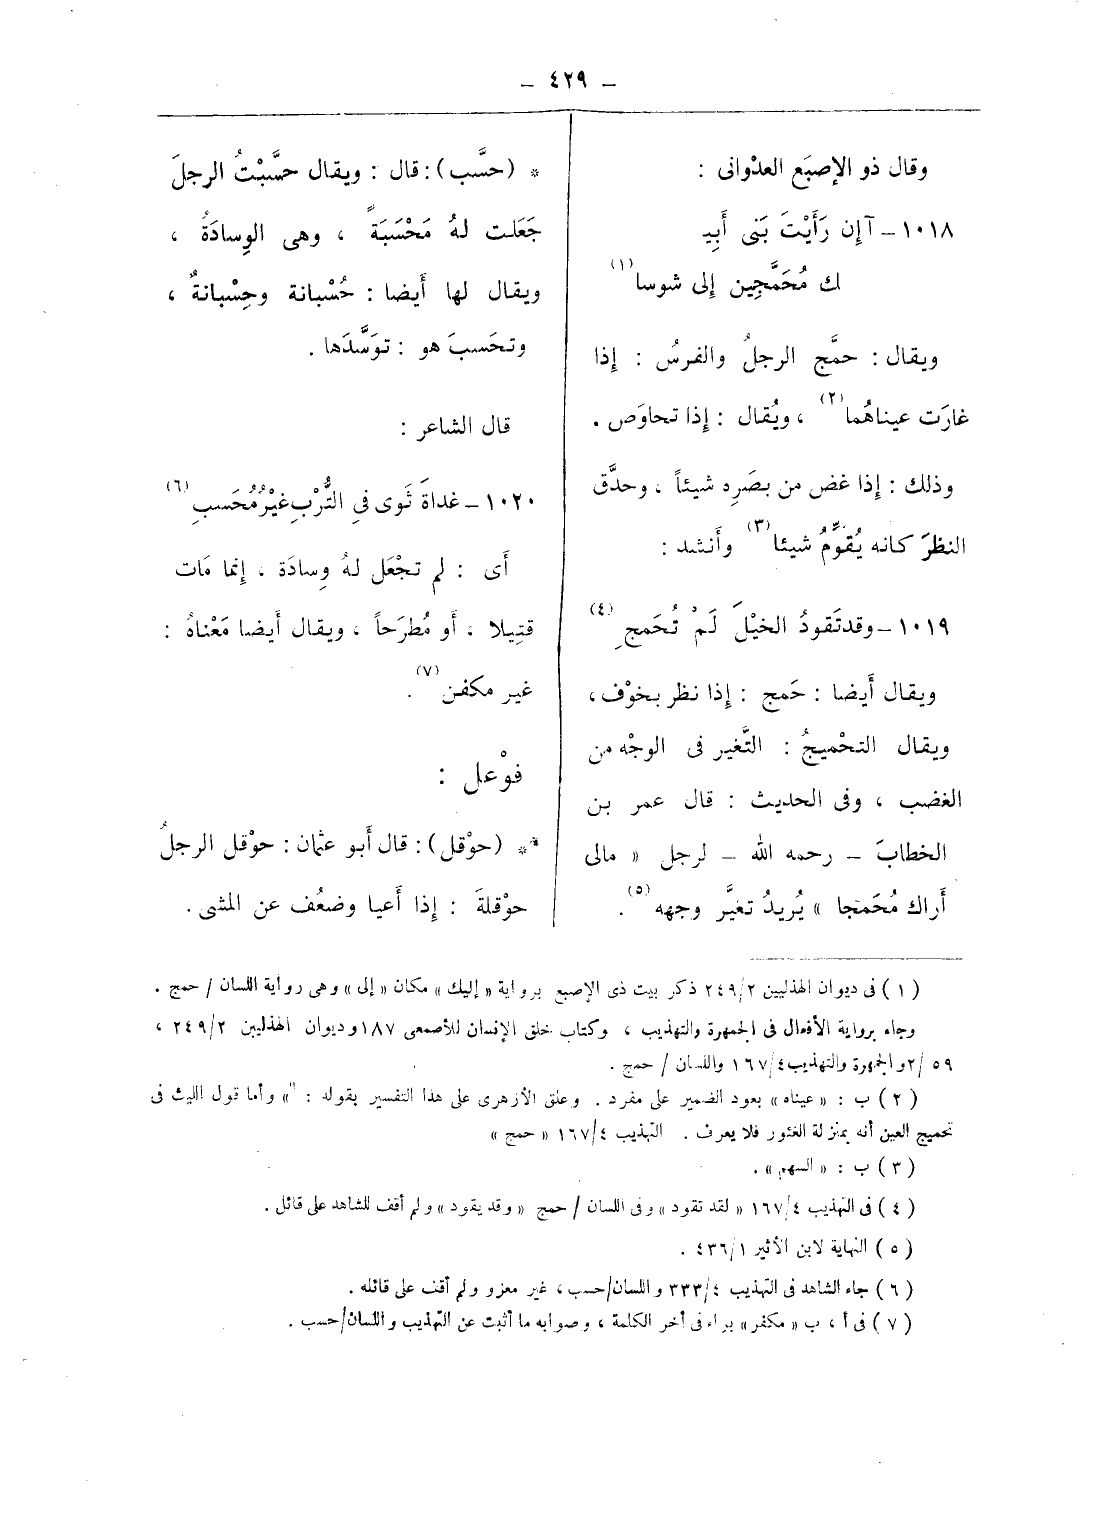 – ٤٢٩ –
وقال ذو الإصبَع العدْوانى :
١٠١٨ – آإن رَأَيْتَ بَنى أَبيـ
ـك مُحَمَّجِين إلى شوسا (١)
ويقال : حمَّج الرجلُ والفرسُ : إذا
غارَت عيناهُما (٢) ، ويُقال : إذا تحاوَص .
وذلك : إذا غض من بصَرِه شيئاً ، وحدَّق
النظرَ كانه يُقوِّمُ شيئا (٣) وأَنشد :
١٠١٩ – وقد تَقودُ الخيْلَ لَمْ تُحَمجِ (٤)
ويقال أَيضا : حَمج : إذا نظر بخوْف ،
ويقال التحْميجُ : التَّغير فى الوجْه من
الغضب ، وفى الحديث : قال عمر بن
الخطابَ – رحمه الله – لرجل « مالى
أَراك مُحَمجا » يُريدُ تغيَّر وجهه (٥) .
* (حسَّب) : قال : ويقال حسَّبْتُ الرجلَ
جَعَلت لهُ مَحْسَبَةً ، وهى الوِسادَةُ ،
ويقال لها أَيضا : حُسْبانة وحِسْبانةٌ ،
وتحَسبَ هو : توَسَّدَها .
قال الشاعر :
١٠٢٠ – غداةَ ثَوى فى التُّرْبِ غيْرُ مُحَسبِ (٦)
أَى : لم تجْعَل لهُ وِسادَة ، إنما مَات
قتِيلا ، أَو مُطرَحاً ، ويقال أَيضا مَعْناهُ :
غير مكفن (٧) .
فوْعل :
** (حوْقل) : قال أَبو عثمان : حوْقل الرجلُ
حوْقلةَ : إذا أَعيا وضعُف عن المشى .
(١) فى ديوان الهذليين ٢٤٩/٢ ذكر بيت ذى الإصبع برواية « إليك » مكان « إلى » وهى رواية اللسان / حمج .
وجاء برواية الأفعال فى الجمهرة والتهذيب ، وكتاب خلق الإنسان للأصمعى ١٨٧ وديوان الهذليين ٢٤٩/٢ ،
٥٩/٢ والجمهرة والتهذيب ١٦٧/٤ واللسان / حمج .
(٢) ب : « عيناه » بعود الضمير على مفرد . وعلق الأزهرى على هذا التفسير بقوله : « وأما قول الليث فى
تحميج العين أنه بمنزلة الغئور فلا يعرف . التهذيب ١٦٧/٤ « حمج »
(٣) ب : « السهم » .
(٤) فى التهذيب ١٦٧/٤ « لقد تقود » وفى اللسان / حمج « وقد يقود » ولم أقف للشاهد على قائل .
(٥) النهاية لابن الأثير ٤٣٦/١ .
(٦) جاء الشاهد فى التهذيب ٣٣٣/٤ واللسان/حسب ، غير معزو ولم أقف على قائله .
(٧) فى أ ، ب « مكفر » براء فى أخر الكلمة ، وصوابه ما أثبت عن التهذيب واللسان/حسب .